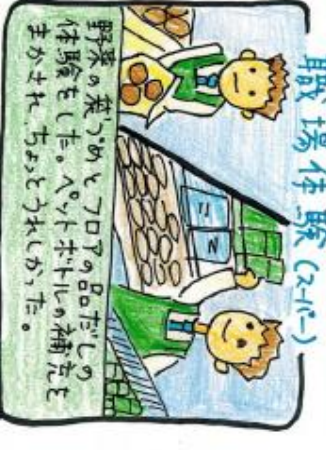 職場体験（スーパー）
野菜の袋づめとフロアの品だしの
体験をした。ペットボトルの補充を
まかされ ちょっとうれしかった。